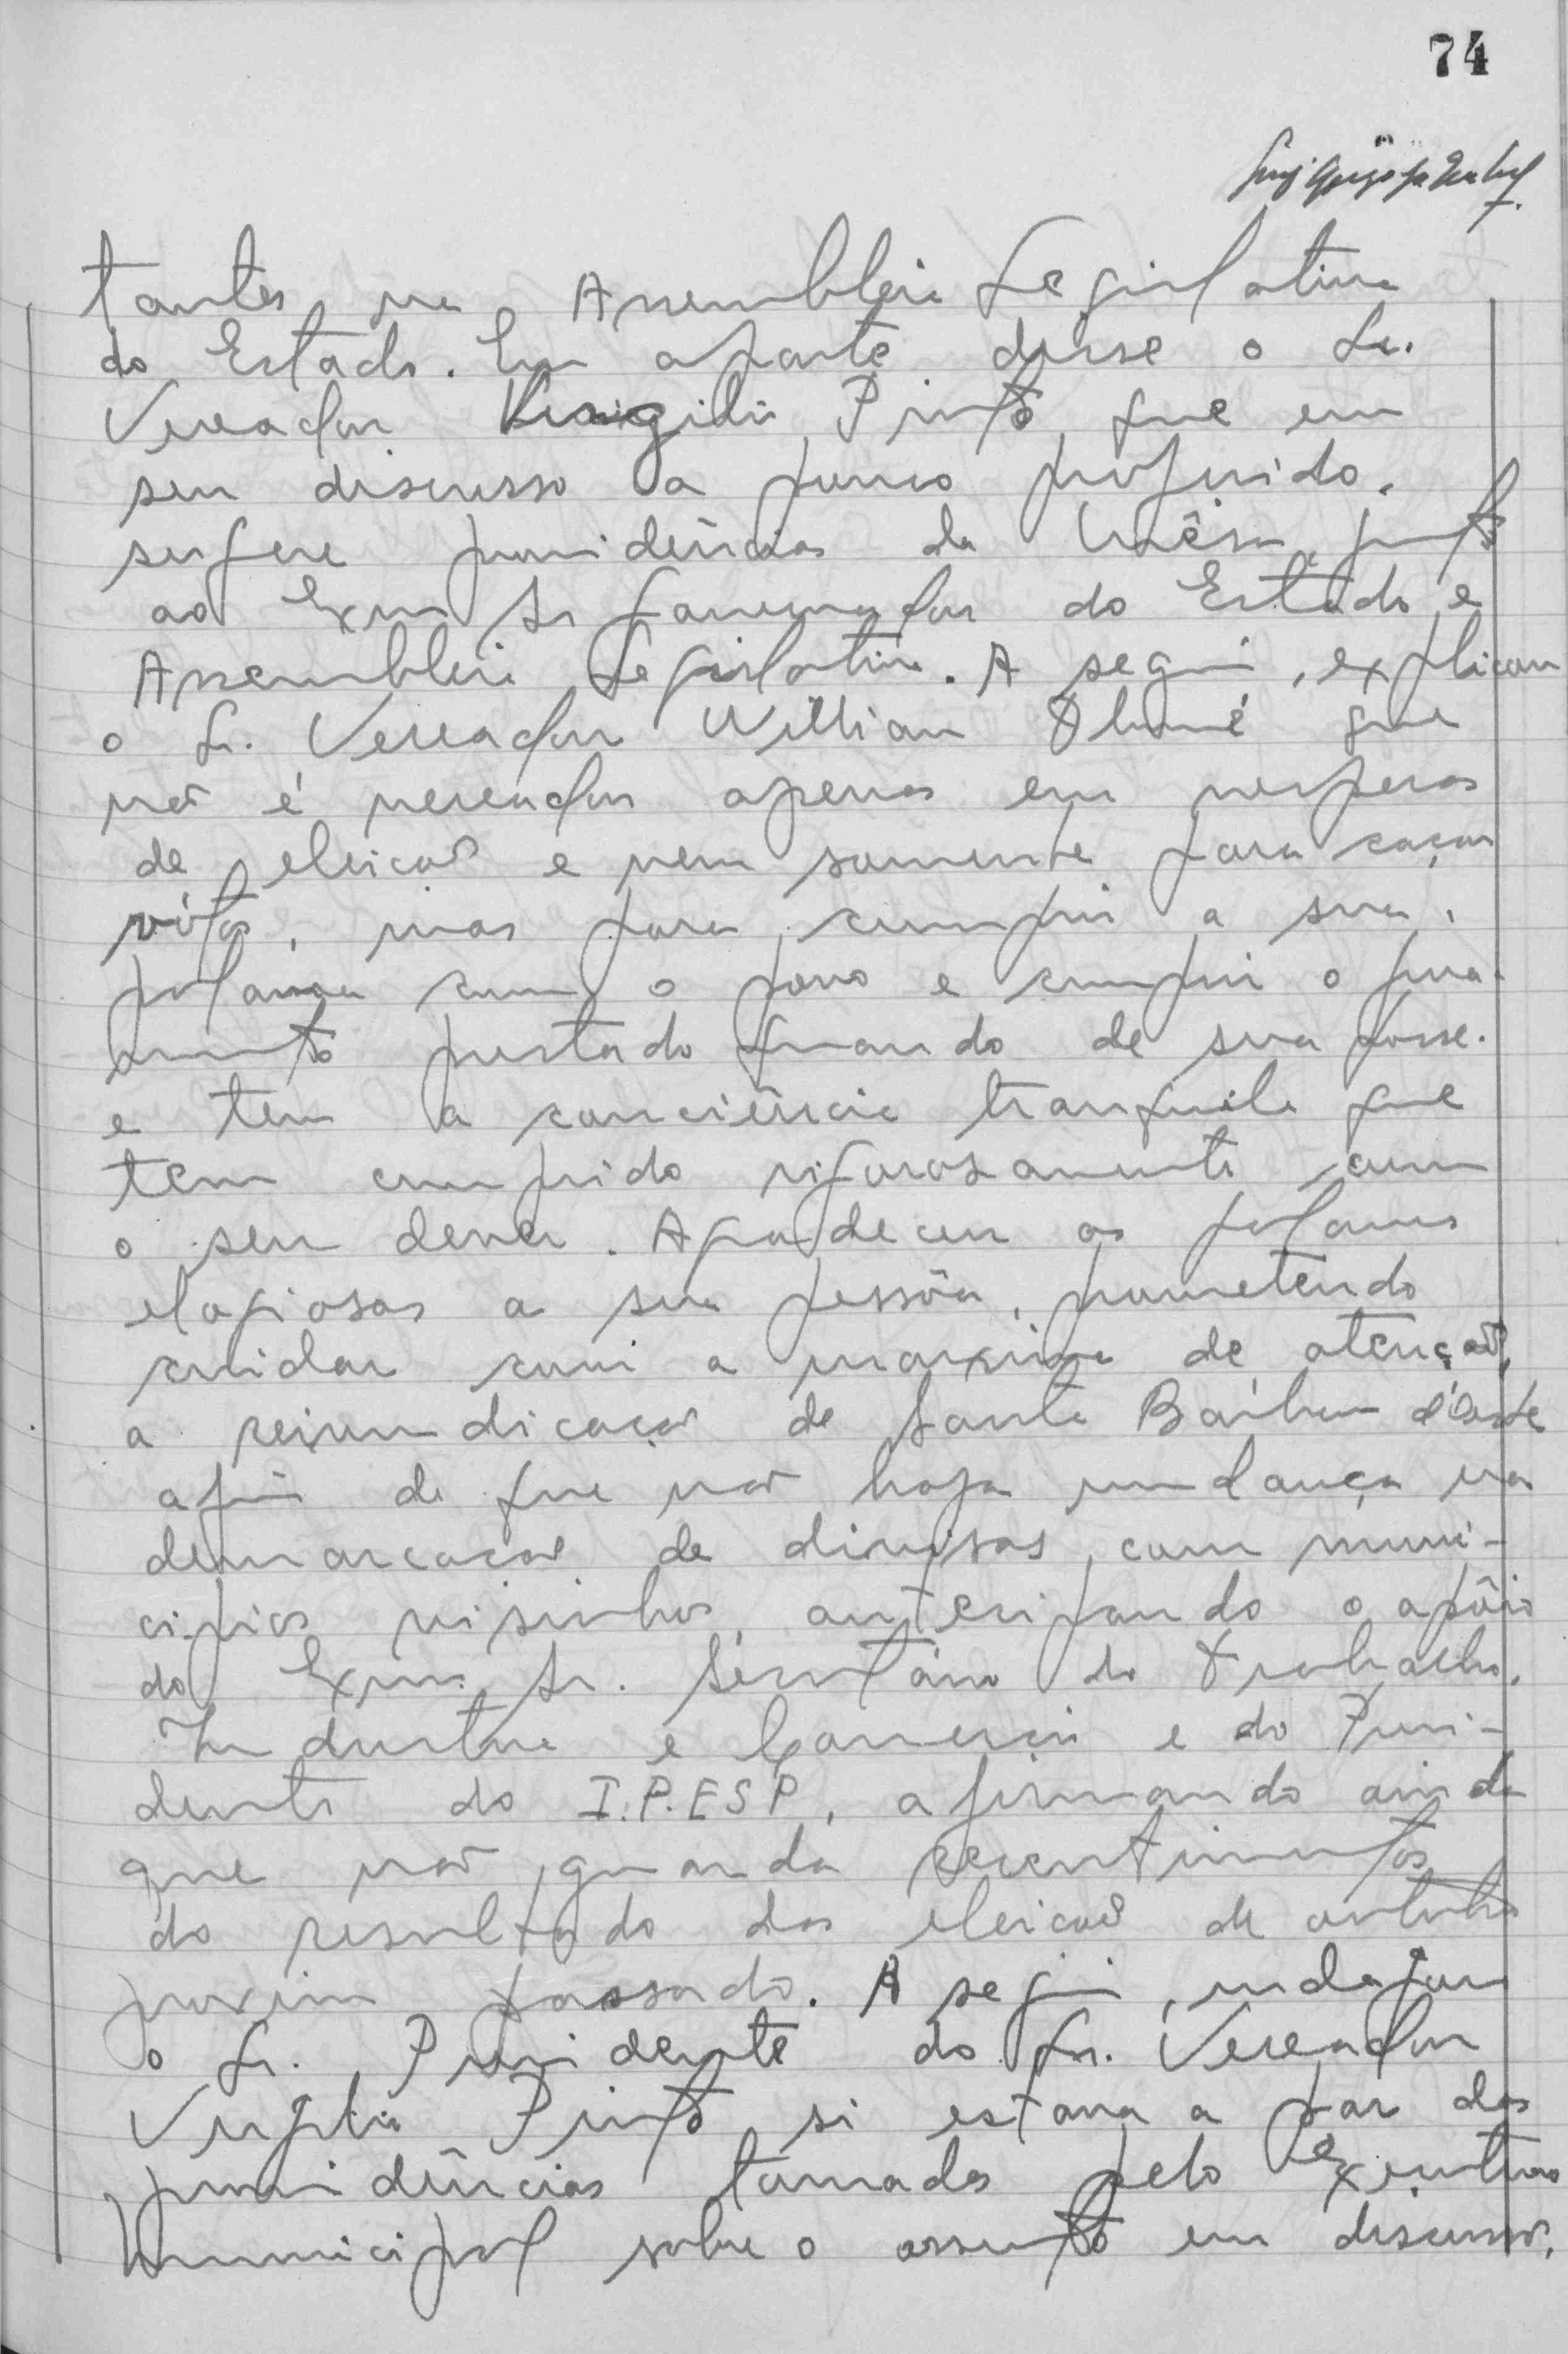 74
tantes na Assembleia Legislativa
do Estado. Em aparte disse o Sr.
Vereador Virgilio Pinto, que em
seu discurso a pouco proferido,
sugere providências da Mêsa, junto
ao Exmo Sr Governador do Estado e
Assembleia Legislativa. A seguir, explicou
o Sr. Vereador Willian Thomé que
não é vereador apenas em vesperas
de eleição e nem somente para caçar
vótos, mas para cumprir a sua
palavra com o povo e cumprir o jura-
mento prestado quando de sua posse.
e tem a conciência tranquila que
tem cumprido rigorosamente com
o seu dever. Agradeceu as palavras
elogiosas a sua pessôa, prometendo
cuidar com a maxima de atenção,
a reivindicação de Santa Bárbara d'Oeste
afim de que não haja mudança na
demarcação de divisas, com muni-
cipios visinhos, antecipando o apôio
do Exmo. Sr. Secretário do Trabalho,
Industria e Comercio e do Presi-
dente do I.P.ESP, afirmando ainda
que não guarda recentimentos
do resultado das eleição de outubro
proximo passado. A seguir, indagou
o Sr. Presidente do Sr. Vereador
Virgilio Pinto si estava a par das
providências tomadas pelo Executivo
Municipal sobre o assunto em discussão.